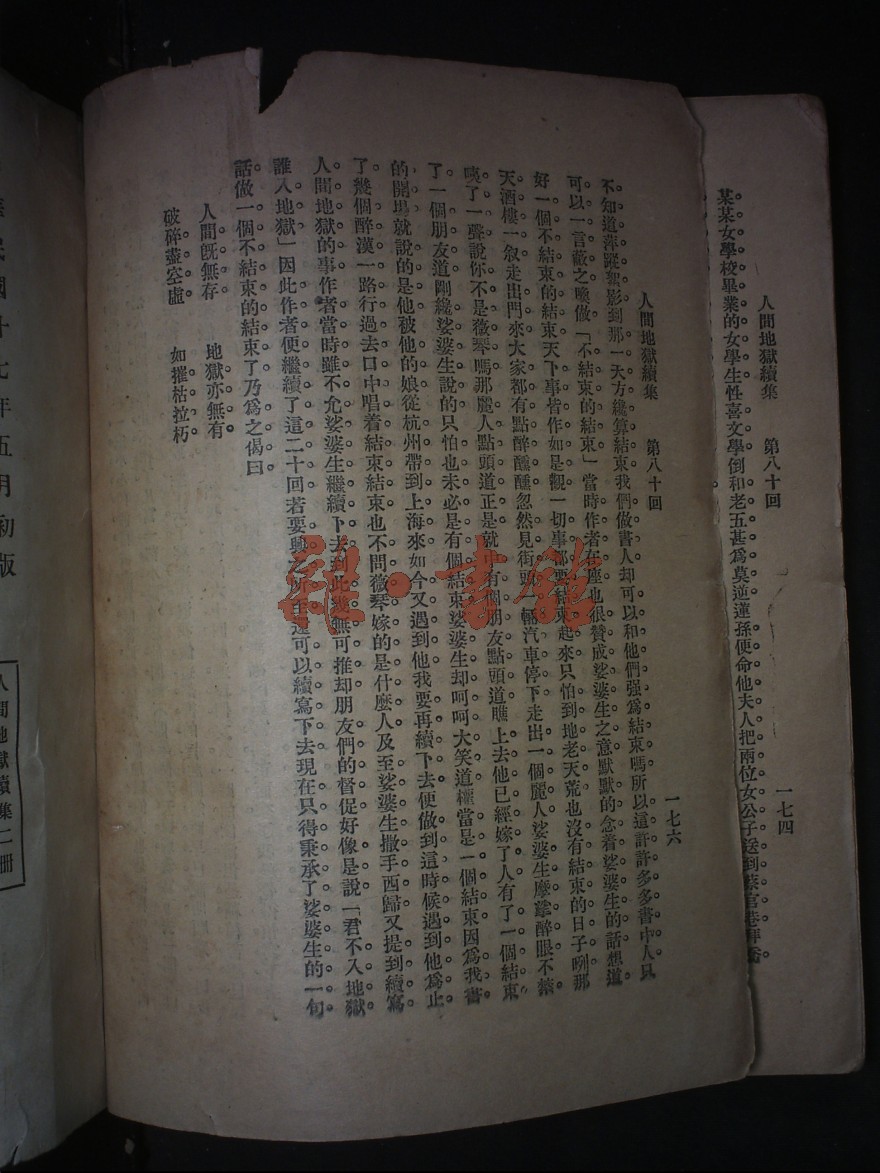 人間地獄續集　第八十回　一七四
某某女學校畢業的女學生性喜文學倒和老五甚爲莫逆蓮孫便命他夫人把兩位女公子送到
人間地獄續集　第八十回　一七六
不知道萍蹤絮影到那一天方纔算結束我們做書人却可以和他們强爲結束嗎。所以這許許多多書中人只
可以一言蔽之喚做「不結束的結束」當時作者在座也很贊成娑婆生之意默默的念着娑婆生的話想道
好一個不結束的結束天下事皆作如是觀一切事都要結束起來只怕到地老天荒也沒有結束的日子咧那
天酒樓一叙走出門來大家都有點醉醺醺忽然見街頭一輛汽車停下走出一個麗人娑婆生摩挲醉眼不禁
咦了一聲說你不是薇琴嗎那麗人點頭道正是就中有個朋友點頭道瞧上去他已經嫁了人有了一個結束
了一個朋友道剛纔娑婆生說的只怕也未必是有個結束娑婆生却呵呵大笑道權當是一個結束因爲我書
的開場就說的是他被他的娘從杭州帶到上海來如今又遇到他我要再續下去便做到這時候遇到他爲止
了幾個醉漢一路行過去口中唱着結束結束也不問薇琴嫁的是什麼人及至娑婆生撒手西歸又提到續寫
人間地獄的事作者當時雖不允娑婆生繼續下去到此幾無可推却朋友們的督促好像是說「君不入地獄
誰入地獄」因此作者便繼續了這二十回若要興 所至還可以續寫下去現在只得秉承了娑婆生的一句
話做一個不結束的結束了乃爲之偈曰
人間旣無存　地獄亦無有
破碎盡空虛　如摧枯拉朽
民國十七年五月初版
人間地獄續集二册
書館